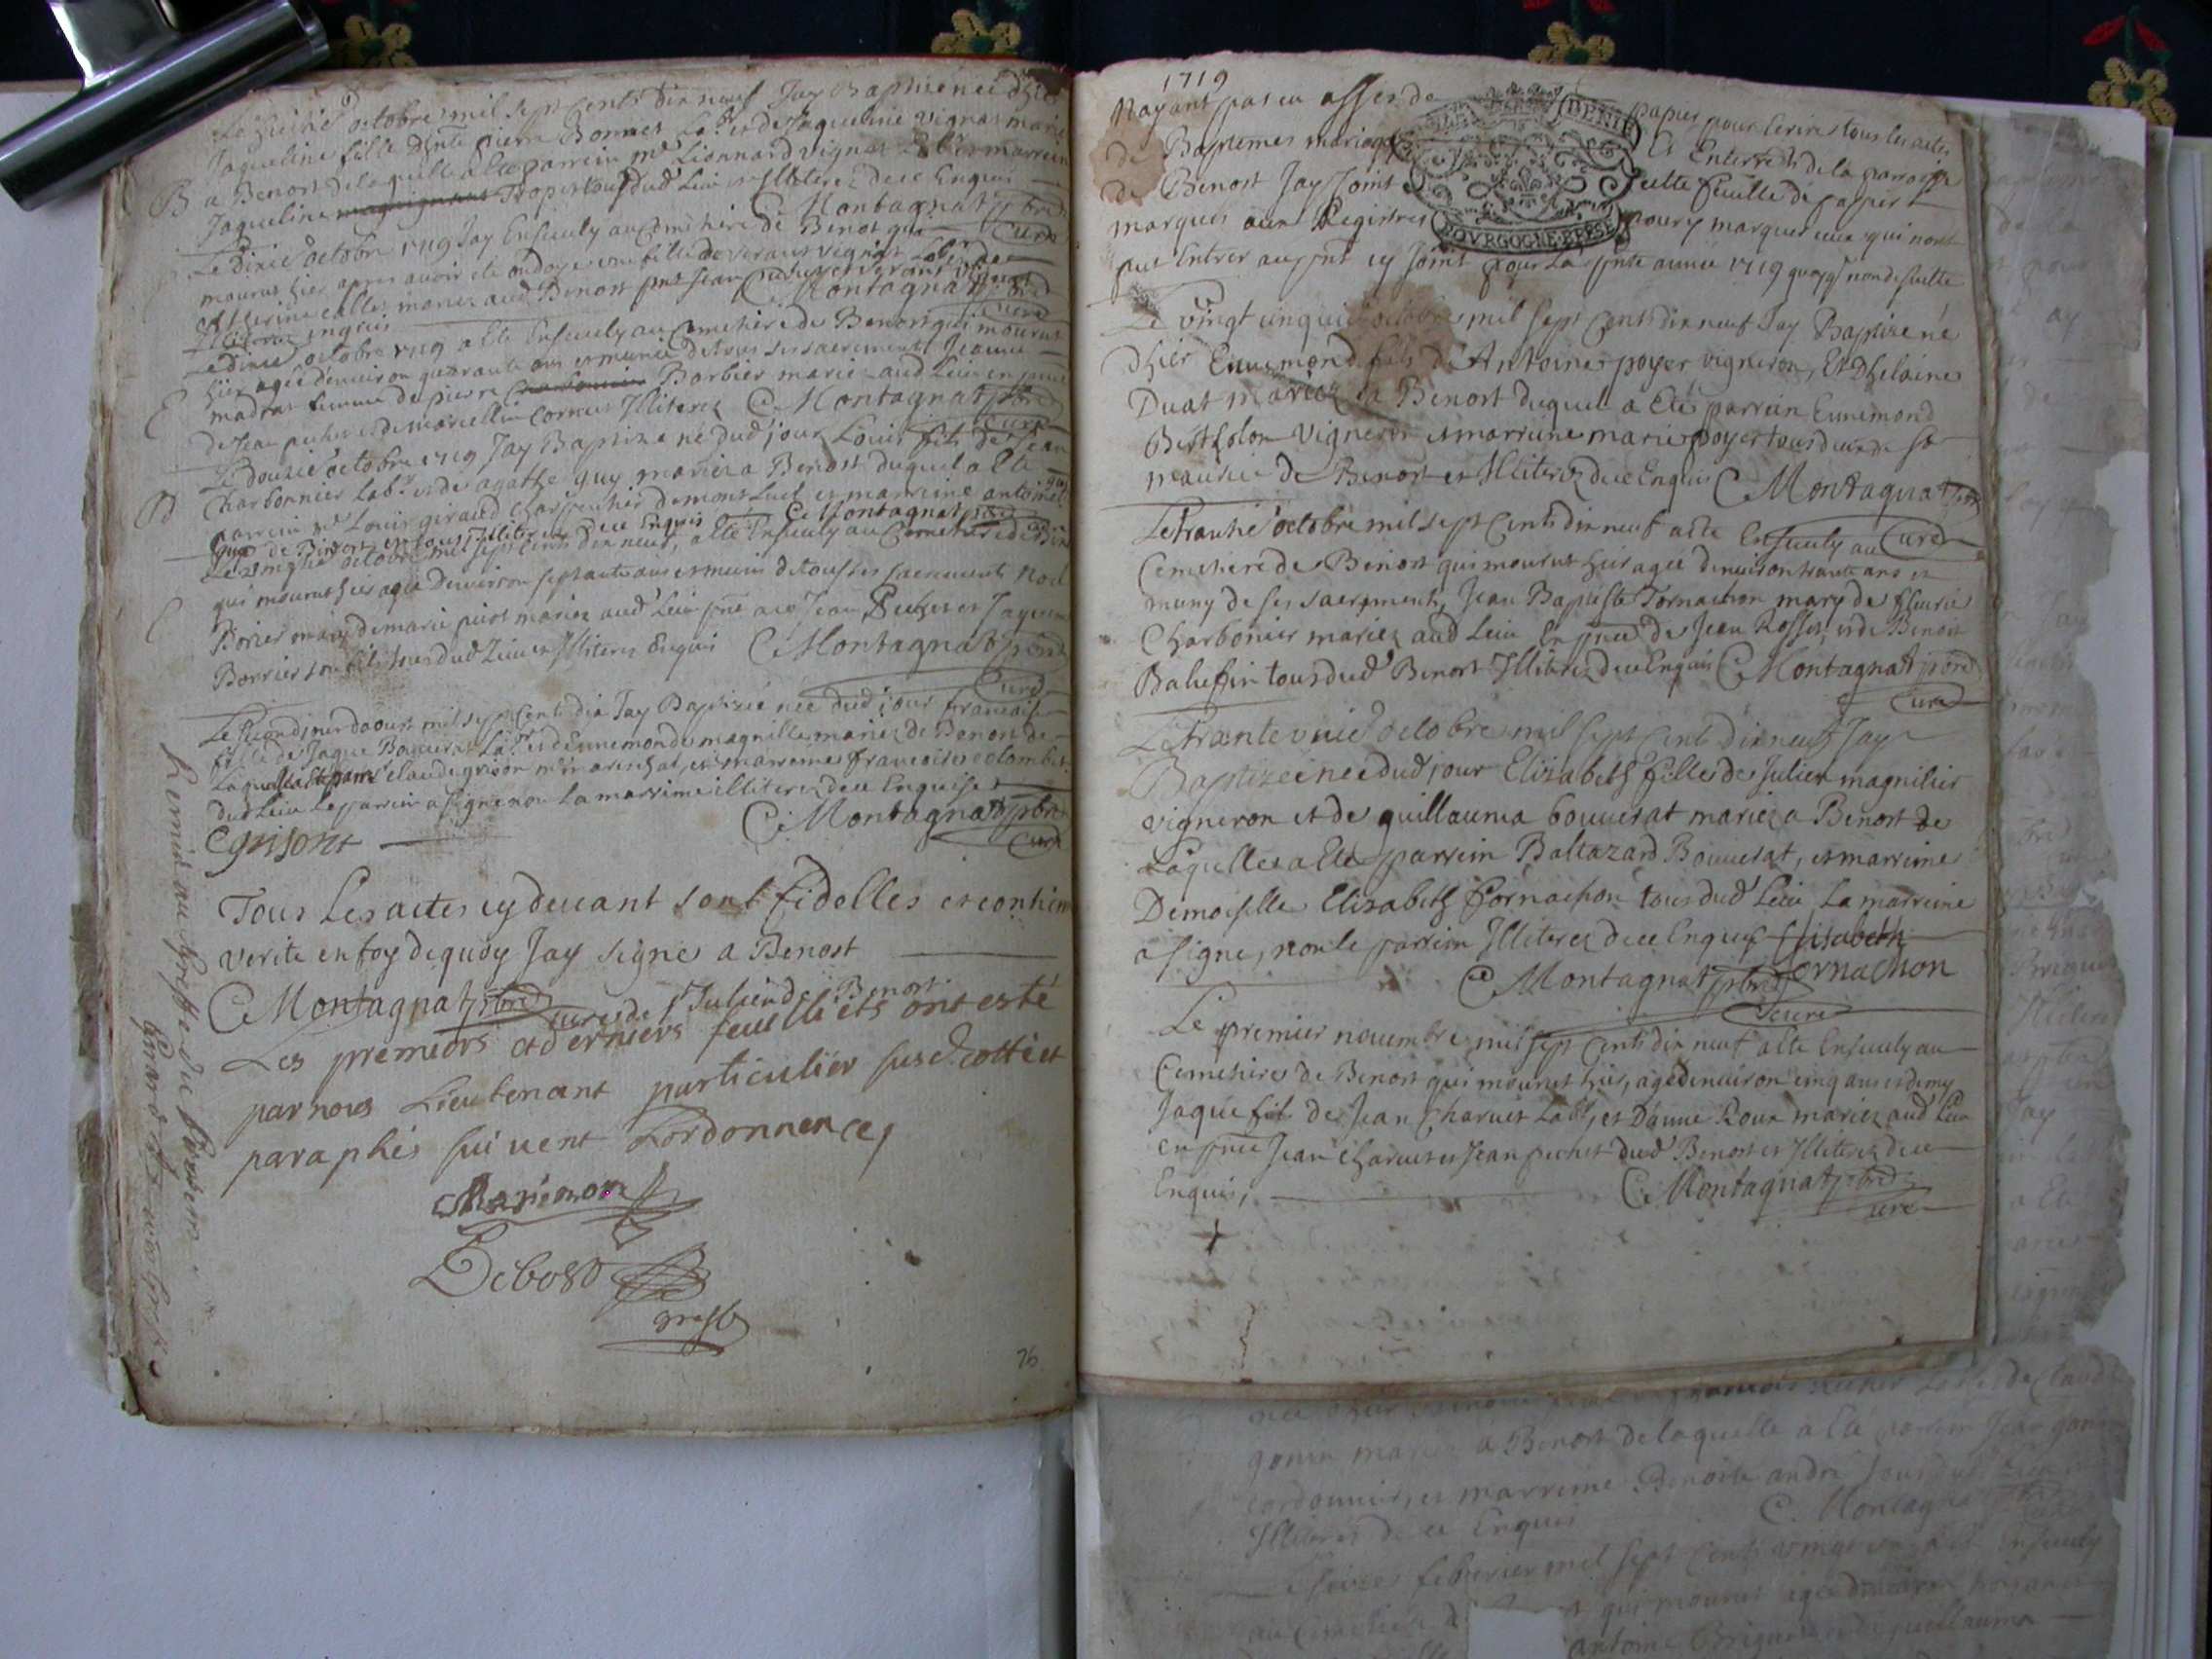 octobre mil sept cents dix neuf Jay Baptisé née d'hier
Jaqueline fille d'hnte pierre Bonnet Lab.r et de Jaqueline vignat mariez
B a Benost de laquelle a Eté parrein m.e Lionnard vignat et marreine
Jaqueline tous dud Lieu et Illiterez de ce Enquis
C Montagnat pbre
curé
Le dixié octobre 1719 Jay Ensevely au Cemetiere de Benost qui
mourut hier apres avoir eté ondoyé une fille de verant vignat Lab.r
mariez aud Benost
C Montagnat pbre
curé
Illiterez enquis
Le dixié octobre 1719 a eté Ensevely au Cemetiere de Benost qui mourut
hier agée d'environ quarante ans et munie de tous ses sacrements Jeanne
E madras femme de pierre Barbier mariez aud Lieu en pnce
de Jean pechet et de marcellin cornet Illiterez C Montagnat pbre
curé
Le douzié octobre 1719 Jay Baptizé né dud jour Louis fils de Jean
B Charbonnier Lab.r et de agathe guy mariez a Benost duquel a Eté
parrein m.e Louis giraud charpentier de montluel et marreine antoinet
guy de Benost et tous Illiterez de ce Enquis C Montagnat pbre
octobre mil sept cents dix neuf, a eté Ensevely au Cemetiere de Benost
qui mourut hier agé Denviron septante ans et muni de tous ses sacrements Noel
Borier mary de marie mariez aud Lieu pnce de Jean Pechet et Jaque
Borrier son fils tous dud Lieu et Illiterez Enquis C Montagnat pbre
curé
Le second jour daoust mil sept cents dix Jay Baptizée née dud jour francoise
fille de Jaque Bouverat Lab.r et d'Ennemonde magnillie mariez de Benost de
Laquelle Et parr claude grison m.e marechal, et marreine francoise colombet
dud Lieu Le parrein a signé non la marreine illiterez de ce Enquise
C Montagnat pbre
curé
C grisont
Tous Les actes cy devant sont fidelles et contien
verite en foy de quoy Jay signe a Benost
C Montagnat pbre curé de St Julien de Benost
Les premiers et derniers feuillets ont esté
par nous Lieutenant particulier susd. cotté et
paraphés suivent Lordonnence,
Debost
greff
Remis au greffe du
76
1719
Nayant pas eu asses de papier pour Ecrire tous les actes
de Baptemes mariages Et Enterrets de la paroisse
de Benost Jay Joint cette feuille de papier
marqués aux Registres pour y marquer ceux qui nont
put Entrer au pnt cy Joint pour La pnte année 1719 quoyq nonde feuille
BOVRGOGNE BRESSE
Le vingt cinquié octobre mil sept cents dix neuf Jay Baptize né
d'hier Ennemond fils de Antoine poyer vigneron, Et Dhelaine
Duat mariez a Benost duquel a Eté parrein Ennemond
Berthelon vigneron et marreine marie poyer tous deux de St
maurice de Benost et Illiterez de ce Enquis C Montagnat pbre
curé
Le Trantié octobre mil sept cents dix neuf a eté Ensevely au
Cemetiere de Benost qui mourut hier agée d'environ trante ans et
muny de ses sacrements, Jean Baptiste Tornachon mary de fleurie
Charbonier mariez aud Lieu En pnce de Jean Rosset et de Benoit
Baluffin tous dud Benost Illiterez de ce Enquis C Montagnat pbre
curé
Le Trante unié octobre mil sept cents dix neuf Jay
Baptizée née dud jour Elizabeth fille de Julien magnilier
vigneron et de guillauma bouverat mariez a Benost de
Laquelle a Eté parrein Baltazard Bouverat, et marreine
Demoiselle Elizabeth fornachon tous dud Lieu La marreine
a signé, non le parrein Illiterez de ce Enquis Elisabeth
C Montagnat pbre fornachon
curé
Le premier novembre mil sept cents dix neuf a eté Ensevely au
Cemetiere de Benost qui mourut hier, agé denviron cinq ans et demy
Jaque fils de Jean Charvet Lab.r, et D'anne Roux mariez aud Lieu
en pnce Jean charvet et Jean pechet dud Benost et Illiterez de ce
Enquis,
C Montagnat pbre
curé
gonin mariez a Benost de laquelle a Eté parrein Jean gon
cordonnier, et marreine Benoite andré tous dud Lieu
Illiterés de ce Enquis C. Montagnat
seize febvrier mil sept cents vingt Ensevely
au cemetiere qui mourut agée d'environ
antoine guillauma